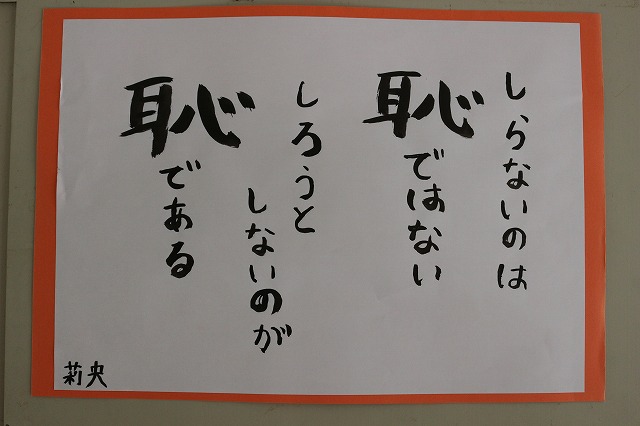 しらないのは
恥ではない
しろうと
しないのが
恥である
莉央